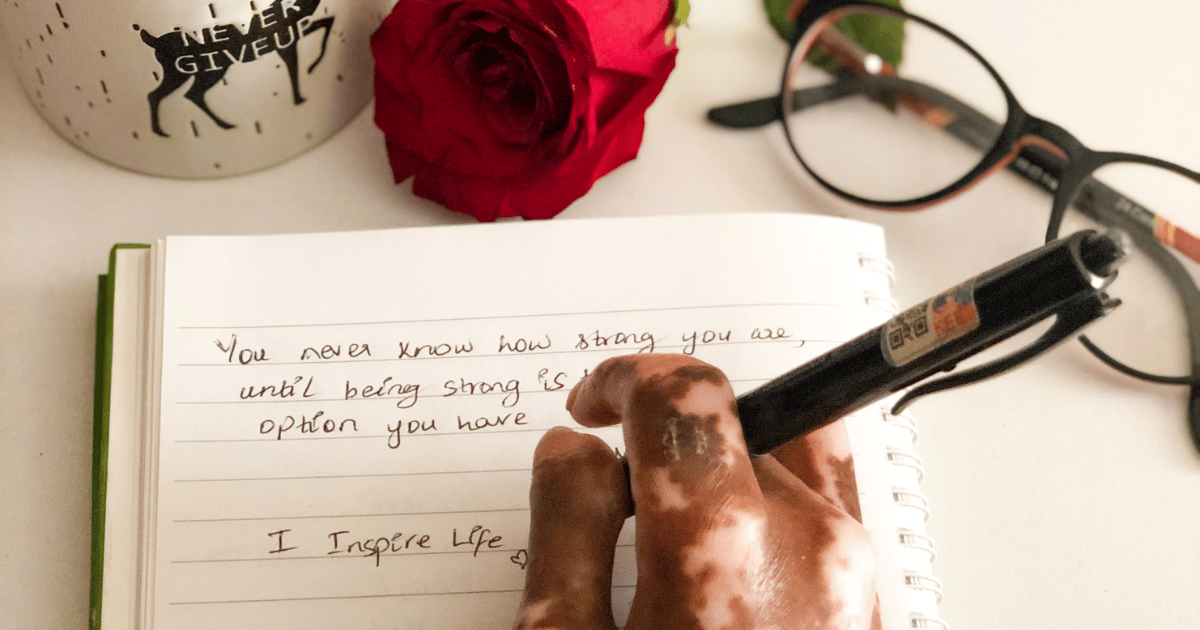 NEVER
GIVEUP
You never know how strong you are,
until being strong is
option you have
I Inspire Life